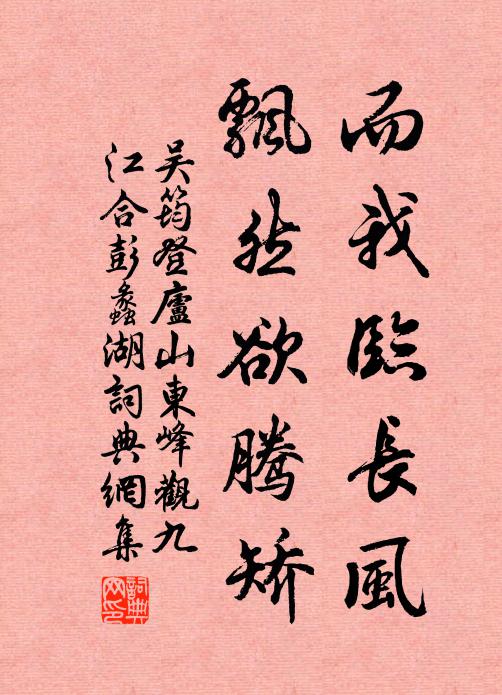 而我臨長風
飄然欲騰矯
吳筠登廬山東峰觀九
江合彭蠡湖詞典網集